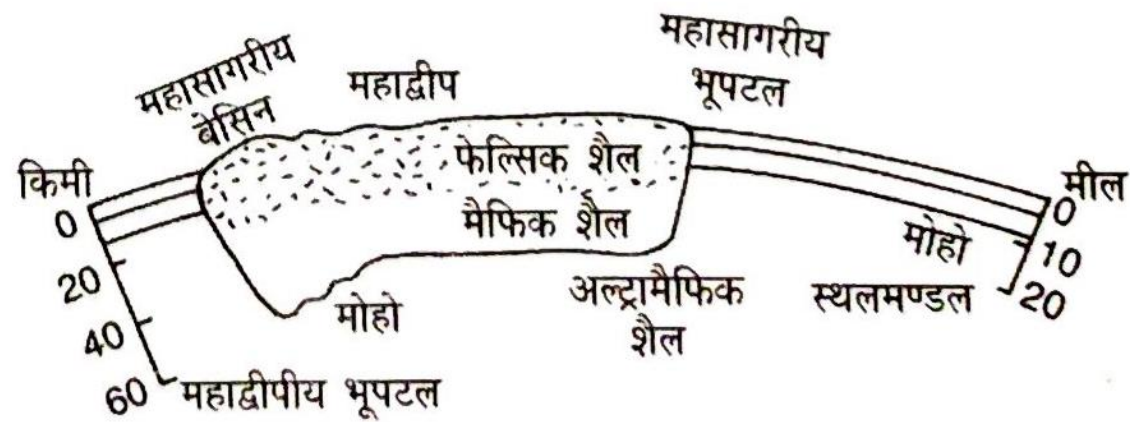 महासागरीय
बेसिन
महाद्वीप
महासागरीय
भूपटल
किमी
0
20
40
60
फेल्सिक शैल
मैफिक शैल
मोहो
अल्ट्रामैफिक
शैल
मोहो
स्थलमण्डल
मील
0
10
20
महाद्वीपीय भूपटल